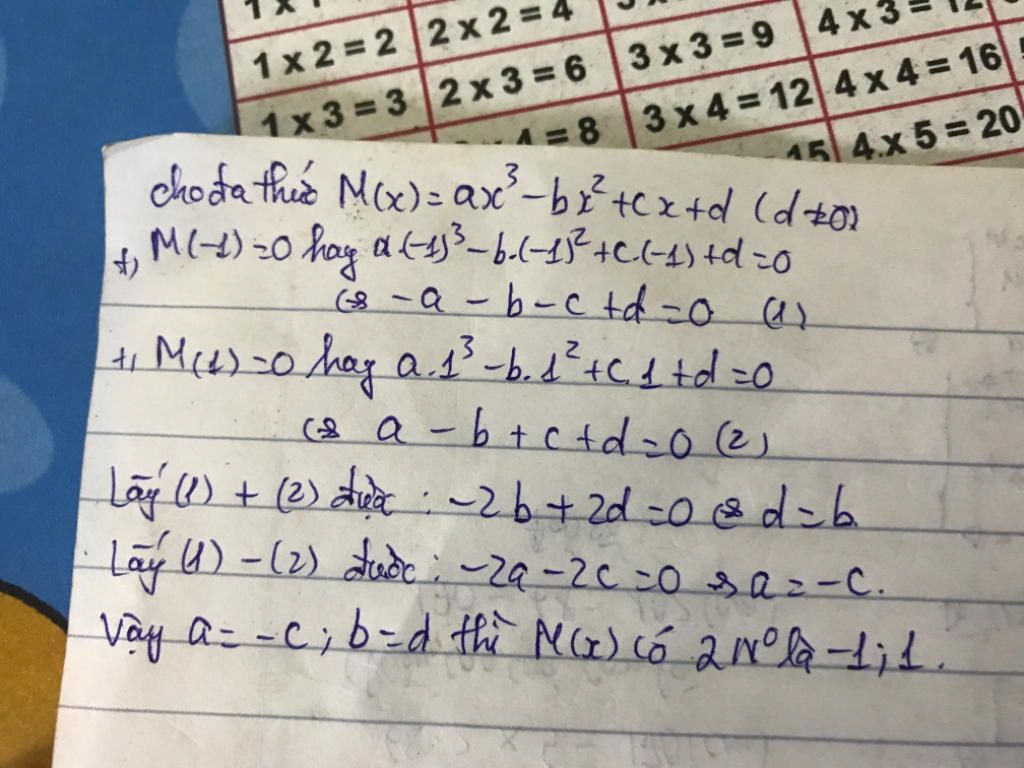 1 x 2 = 2 2 x 2 = 4 4 x 3 = 12
1 x 3 = 3 2 x 3 = 6 3 x 3 = 9 4 x 4 = 16
4 = 8 3 x 4 = 12 4 x 5 = 20
15
cho đa thức M(x) = ax³ - bx² + cx + d (d ≠ 0)
+, M(-1) = 0 hay a.(-1)³ - b.(-1)² + c.(-1) + d = 0
⇔ -a - b - c + d = 0 (1)
+, M(1) = 0 hay a.1³ - b.1² + c.1 + d = 0
⇔ a - b + c + d = 0 (2)
Lấy (1) + (2) được : -2b + 2d = 0 ⇔ d = b.
Lấy (1) - (2) được : -2a - 2c = 0 ⇔ a = -c.
Vậy a = -c ; b = d thì M(x) có 2 N⁰ là -1 ; 1.